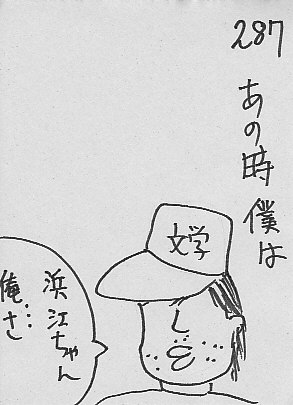 287
あの時僕は
文学
浜江ちゃん
俺…さ